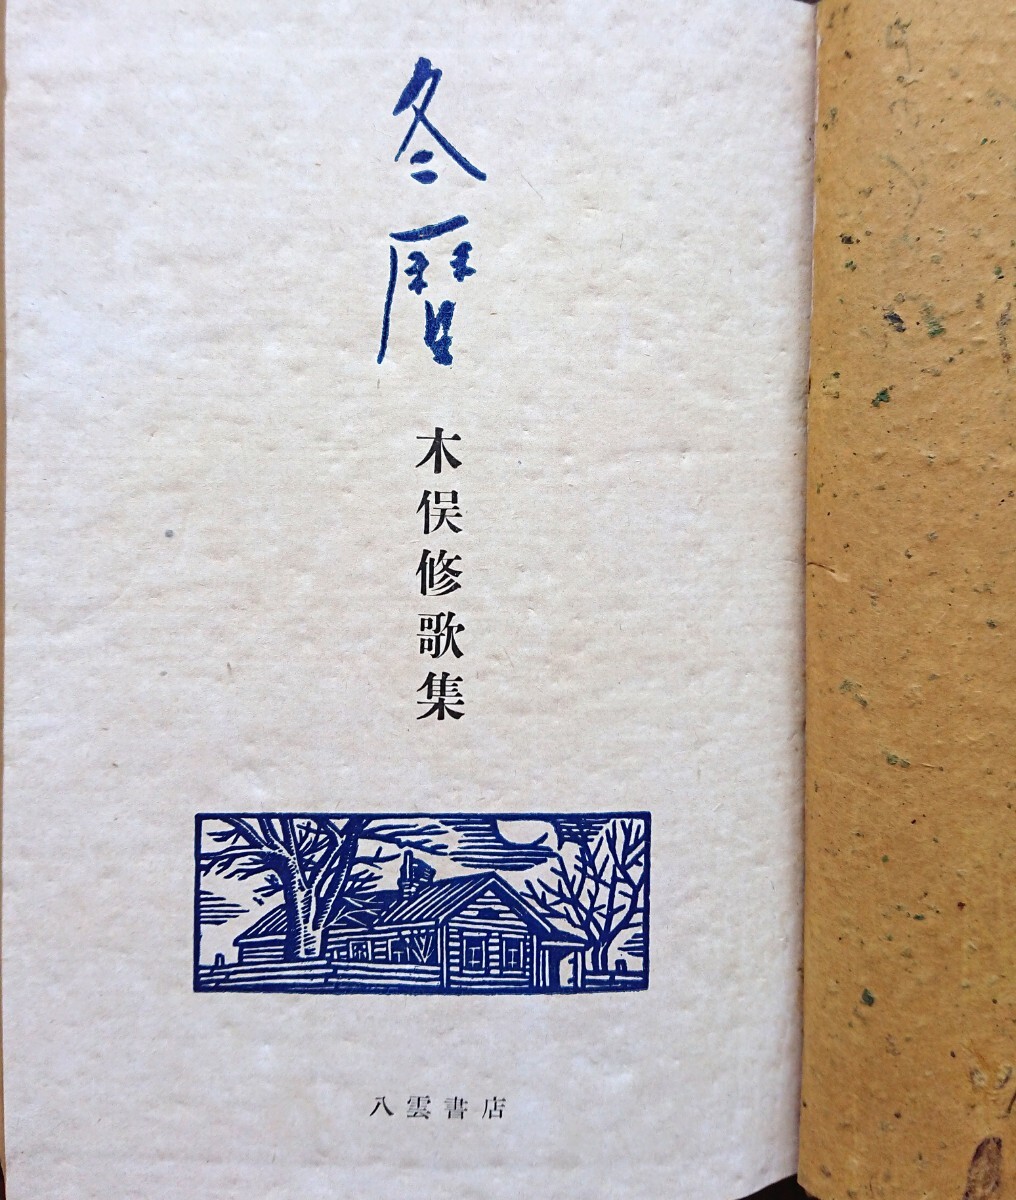 冬暦
木俣修歌集
八雲書店